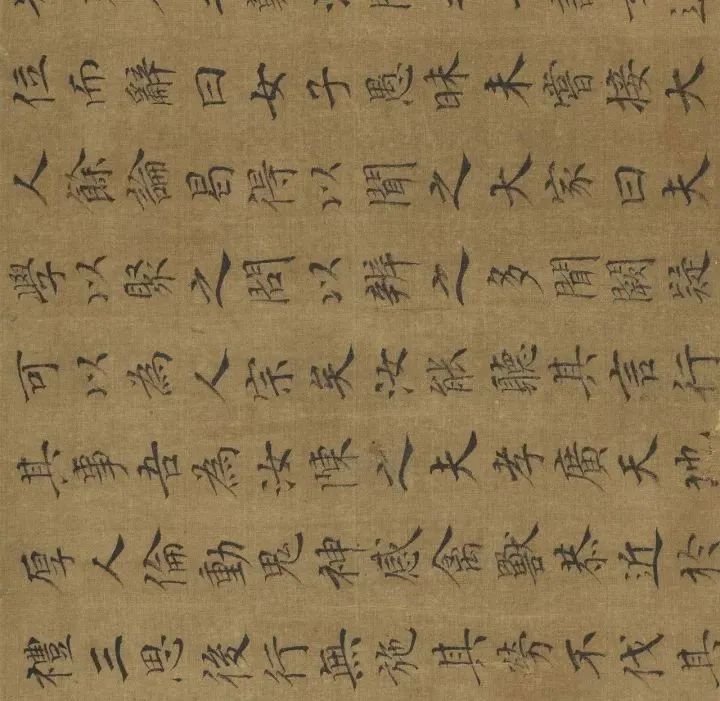 位而辭曰女子愚昧未嘗接大
人餘論曷得以聞之大家曰夫
學以聚之問以辨之多聞闕疑
可以為人宗矣汝能聽其言行
其事吾為汝陳之夫孝廣天地
厚人倫動鬼神感禽獸恭近於
禮三思後行無施其勞不伐其